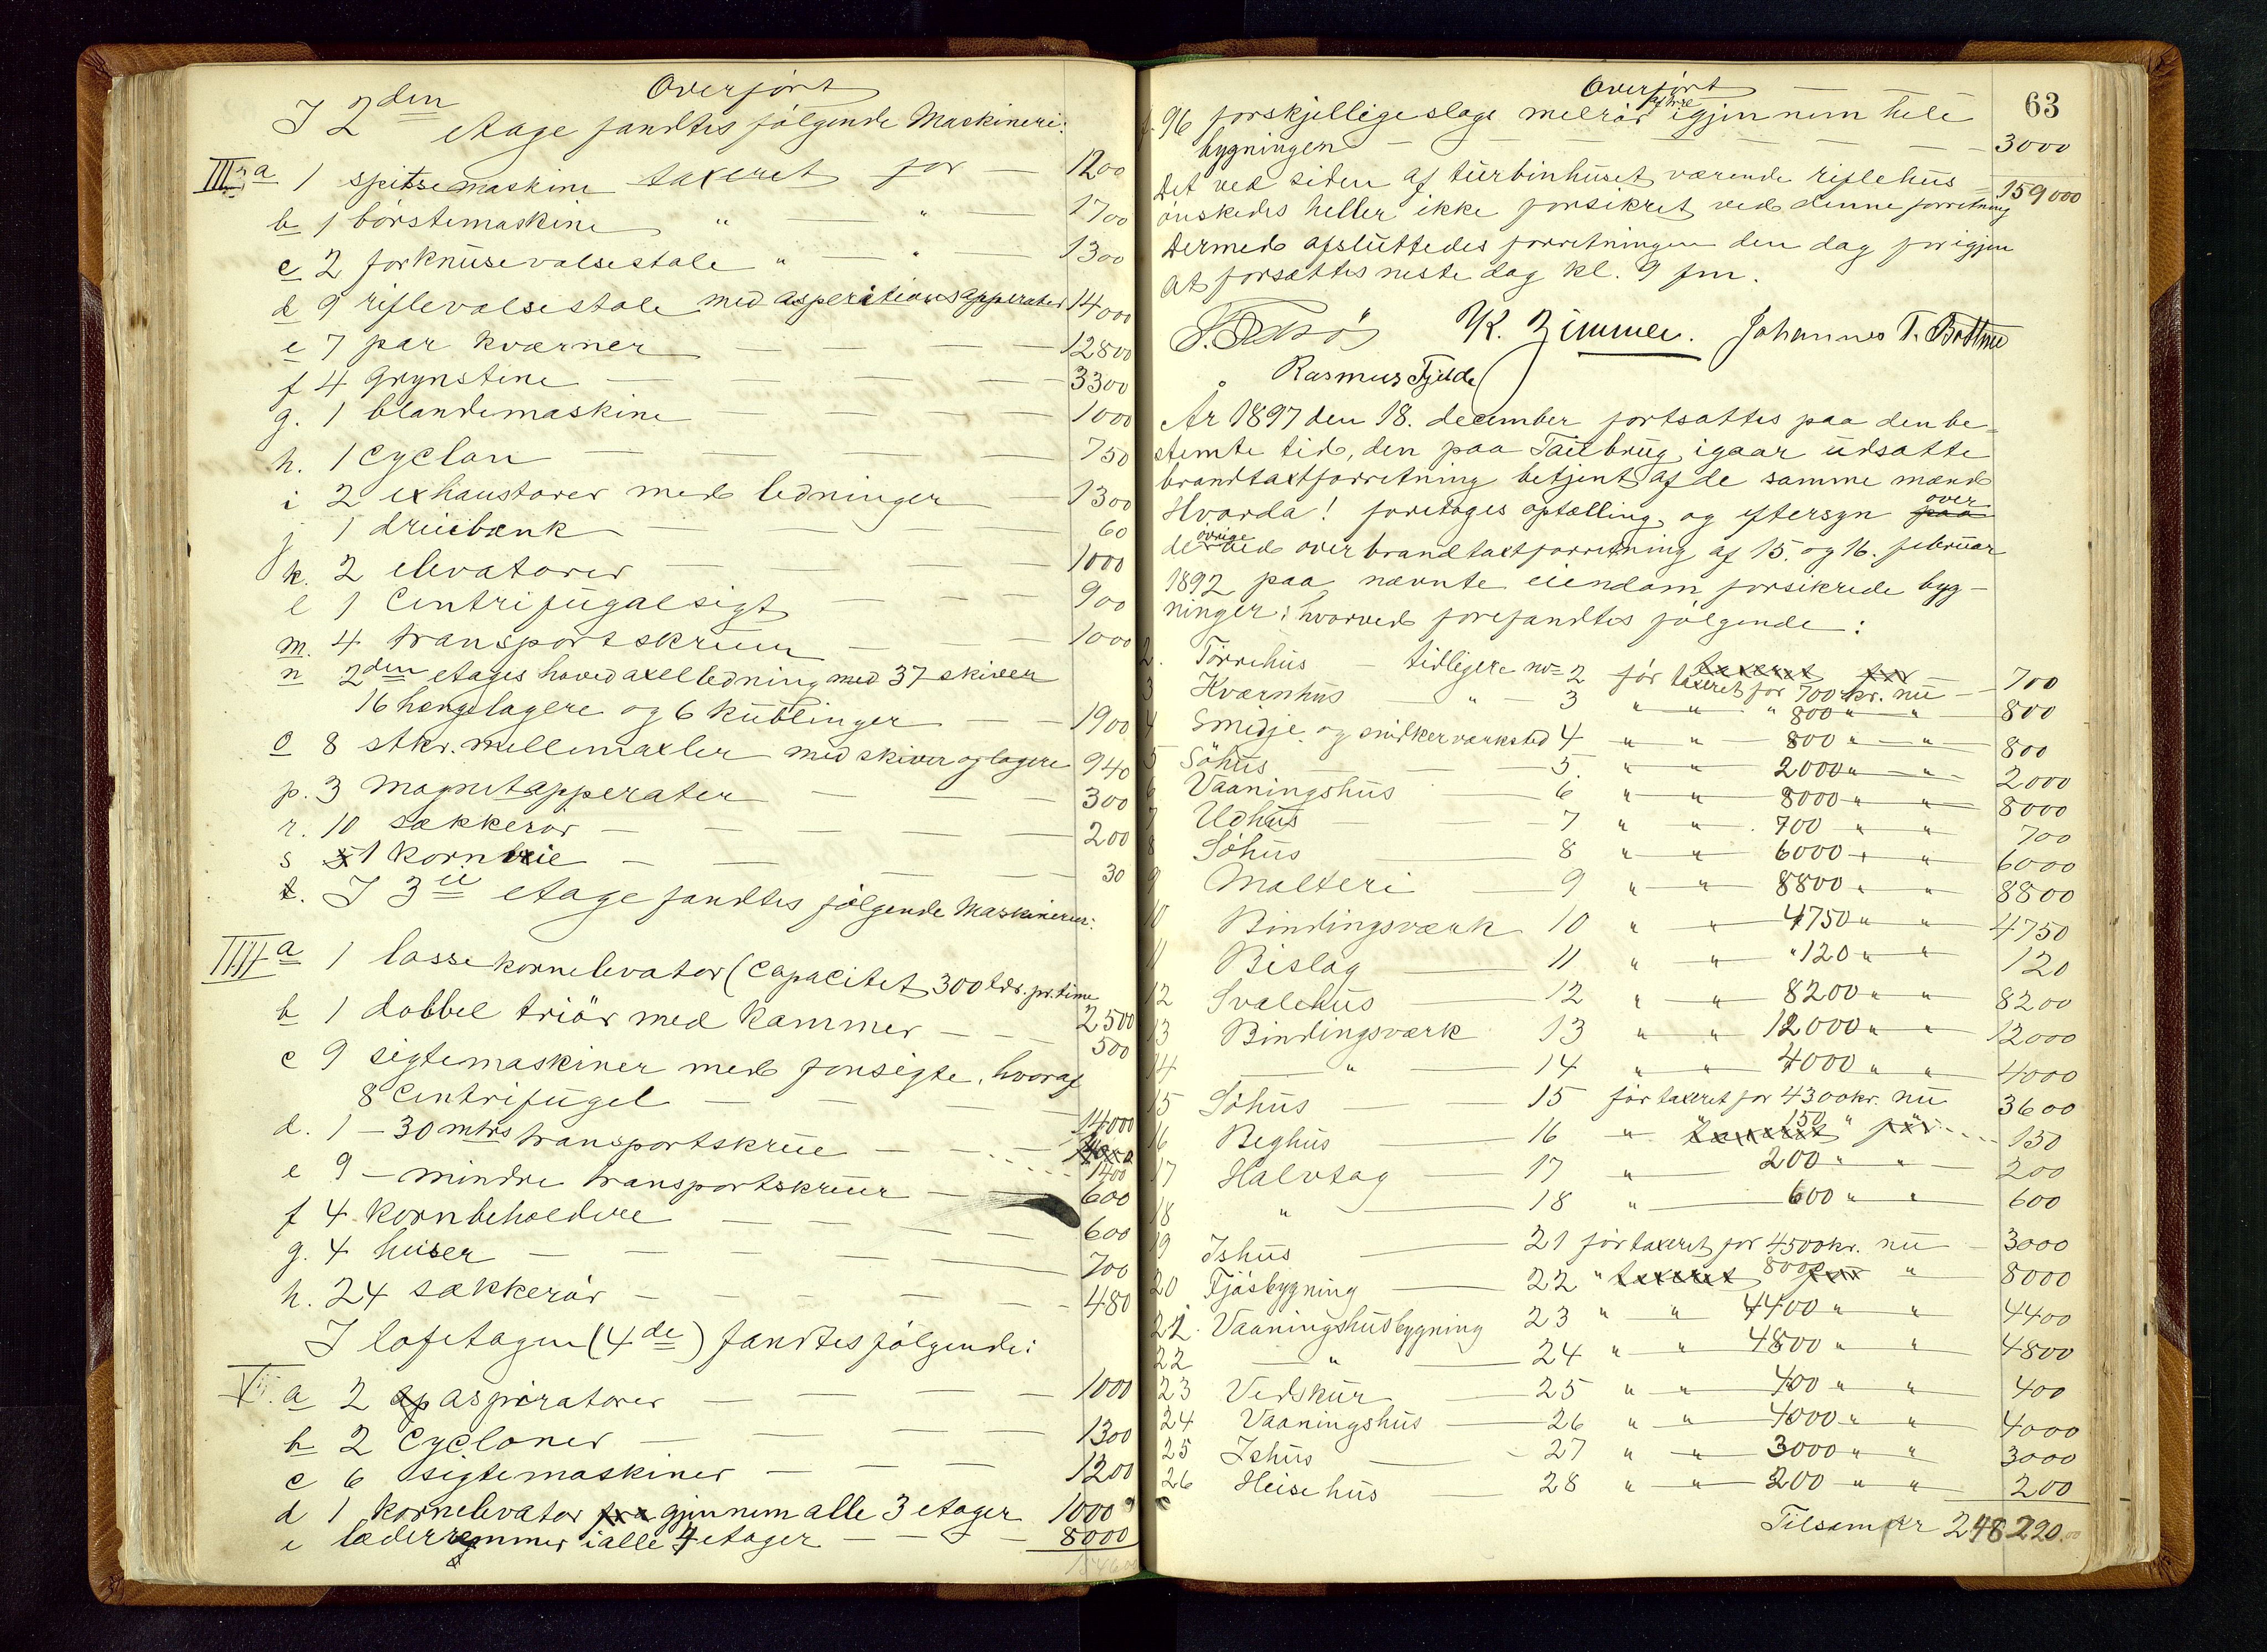 Overført
I 2den etage fandtes følgende Maskineri:
III a 1 spitsemaskine taxeret for — 1200
b 1 børstemaskine " — " — 1700
c 2 forknusevalsestole " — " — 1300
d 9 riflevalsestole med asperationsapperater 14000
e 7 par kværner — — — 12800
f 4 grynstene — — — 3300
g. 1 blandemaskine — — — 1000
h. 1 Cyclon — — — 750
i 2 exhaustorer med ledninger — 1300
j 1 dreiebænk — — 60
k. 2 elevatorer — — — 1000
l 1 Centrifugalsigt — — — 900
m. 4 transportskruer — — 1000
n 2den etages hovedaxelledning med 37 skiver
16 hængelagere og 6 kublinger — — 1900
o 8 stkr. mellemaxler med skiver og lagere 940
p. 3 magnetapperater — — — 300
r. 10 sækkerør — — — 200
s 1 kornbeie — — — 30
t. I 3ie etage fandtes følgende Maskinerier:
IIII a 1 lossekornelevator (Capacitet 300 tdr. pr. time
2500
b 1 dobbel triør med kammer — — 500
c 9 sigtemaskiner med forsigte, hvoraf
8 Centrifugel — — — 14000
d. 1 – 30 mtrs transportskrue — — 1400
e 9 – mindre transportskruer — — 600
f 4 kornbeholdere — — — 600
g. 4 heiser — — — 700
h. 24 sækkerør — — — 480
I loftetagen (4de) fandtes følgende:
V. a 2 aspiratorer — — — 1000
b 2 Cycloner — — — 1300
c 6 sigtemaskiner — — — 1200
d 1 kornelevator fra gjennem alle 3 etager 1000
e læderremmer i alle 4 etager — — 8000
Overført
63
f. 96 forskjelligeslags melrør igjennem hele
bygningen — — — — 3000
Det ved siden af turbinhuset værende riflehus 159000
ønskedes heller ikke forsikret ved denne forretning
Dermed afsluttedes forretningen den dag for igjen
at forsættes neste dag kl. 9 fm.
K. Zimmer. Johannes T.
Rasmus Fjelde
År 1897 den 18. december fortsattes paa den be-
stemte tid, den paa igaar udsatte
brandtaxtforretning betjent af de samme mænd
Hvorda! foretoges optælling og eftersyn paa over
de øvrige ved overbrandtaxtforretning af 15. og 16. februar
1892 paa nævnte eiendom forsikrede byg-
ninger; hvorved forefandtes følgende:
2. Tørrehus — tidligere no= 2 før taxeret for 700 kr. nu — 700
3 Kværnhus " — 3 " " " 800 " " 800
4 Smidje og snidkerværksted 4 " " — 800 " — " — 800
5 Søhus — — 5. " " — 2000 " — " — 2000
6 Vaaningshus — 6 " " — 8000 " " — 8000
7 Udhus — — 7 " " — 700 " " — 700
8 Søhus — 8 " " — 6000 " " — 6000
9 Malteri — 9 " " — 8800 " " — 8800
10 Bindingsværk 10 " " — 4750 " " — 4750
11 Bislag — 11 " " — " 120 " " — 120
12 Svalehus — 12 " " — 8200 " " — 8200
13 Bindingsværk 13 " " — 12000 " " — 12000
14 — " — 14 " " — 4000 " " — 4000
15 Søhus — — 15 før taxeret for 4300 kr. nu 3600
16 Beghus — 16 " — 150 " 150
17 Halvtag — 17 " — 200 " " — 200
18 " — 18 " — 600 " " — 600
19 Ishus — 21 før taxeret for 4500 kr. nu — 3000
20 Fjøsbygning — 22 " 8000 " 8000
21. Vaaningshusbygning 23 " " 4400 " " — 4400
22 — " — 24 " " — 4800 " " — 4800
23 Vedskur — 25 " " — 400 " " — 400
24 Vaaningshus — 26 " " — 4000 " " — 4000
25 Ishus — 27 " " — 3000 " " — 3000
26 Heisehus — 28 " " — 200 " " — 200
Tilsam kr 248220.00